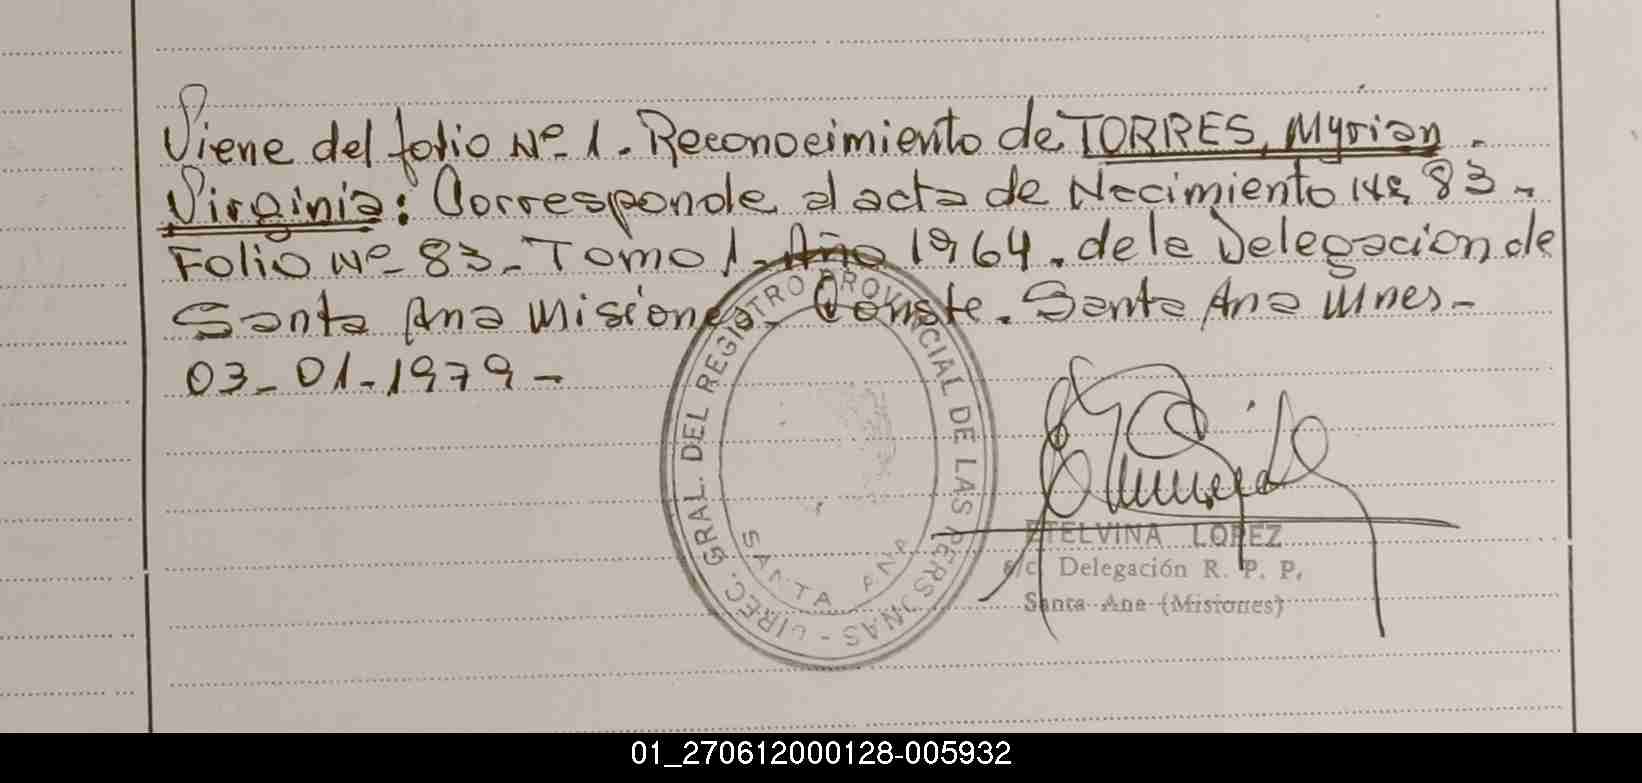 Viene del folio Nº 1. Reconocimiento de TORRES, Myrian
Virginia: Corresponde al acta de Nacimiento Nº 83 -
Folio Nº 83 - Tomo 1 - Año 1964. de la Delegacion de
Santa Ana Misiones - Conste. Santa Ana Mnes -
03 - 01 - 1979 -
DIREC. GRAL. DEL REGISTRO PROVINCIAL DE LAS PERSONAS -
SANTA ANA
ETELVINA LOPEZ
s/c Delegación R. P. P.
Santa Ana (Misiones)
01_270612000128-005932